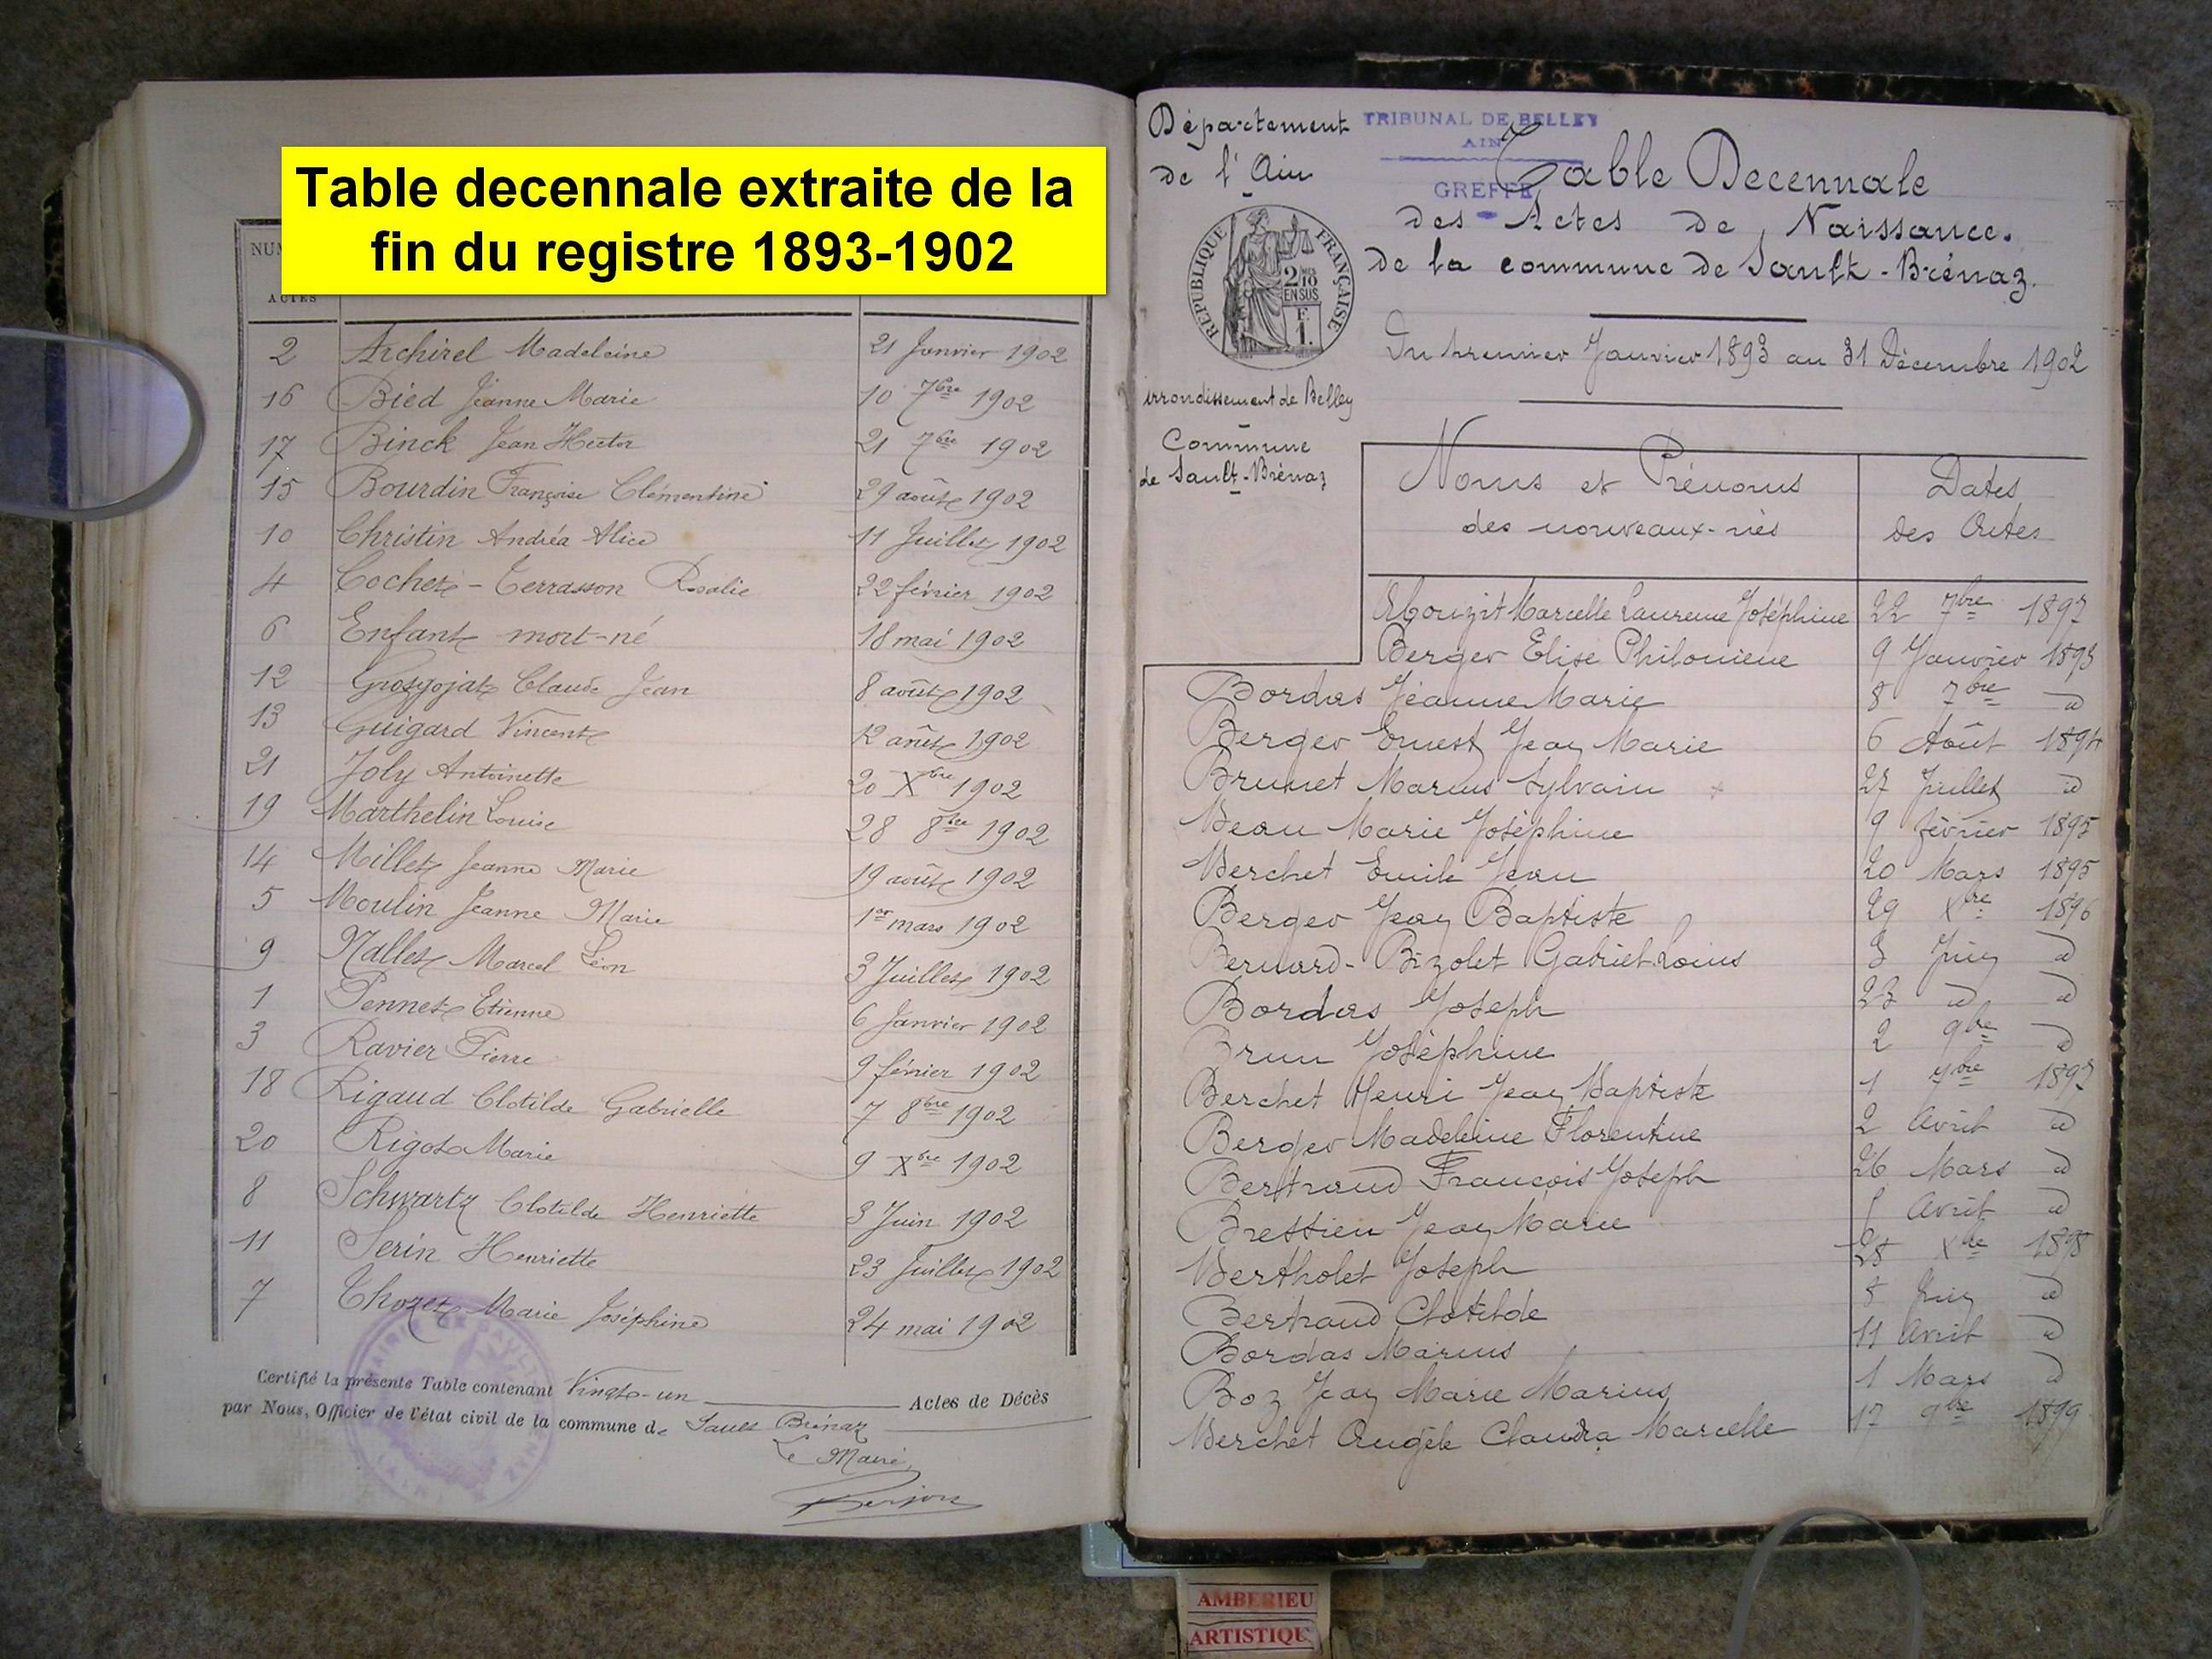 Table decennale extraite de la
fin du registre 1893-1902
ACTES
2 Archirel Madeleine 21 Janvier 1902
16 Bied Jeanne Marie 10 7bre 1902
17 Binck Jean Hector 21 7bre 1902
15 Bourdin Françoise Clémentine 29 août 1902
10 Christin Andréa Alice 11 Juillet 1902
4 Cochet-Terrasson Rosalie 22 février 1902
6 Enfant mort-né 18 mai 1902
12 Grosgojat Claude Jean 8 août 1902
13 Guigard Vincent 12 août 1902
21 Joly Antoinette 20 Xbre 1902
19 Marthelin Louise 28 8bre 1902
14 Millet Jeanne Marie 19 août 1902
5 Moulin Jeanne Marie 1er mars 1902
9 Nallet Marcel Léon 3 Juillet 1902
1 Pennet Etienne 6 Janvier 1902
3 Ravier Pierre 9 février 1902
18 Rigaud Clotilde Gabrielle 7 8bre 1902
20 Rigot Marie 9 Xbre 1902
8 Schwartz Clotilde Henriette 3 Juin 1902
11 Serin Henriette 23 Juillet 1902
7 Thozet Marie Joséphine 24 mai 1902
Certifié la présente Table contenant Vingt-un Actes de Décès
par Nous, Officier de l'état civil de la commune de Sault Brénaz
Le Maire,
Département
de l'Ain
TRIBUNAL DE BELLEY
AIN
GREFFE
Table Decennale
des Actes de Naissance.
de la commune de Sault-Brénaz.
RÉPUBLIQUE FRANÇAISE
2/10 EN SUS
F. 1.
Du premier Janvier 1893 au 31 Décembre 1902
arrondissement de Belley
Commune
de Sault-Brénaz
Noms et Prénoms
des nouveaux-nés
Dates
des Actes
Abouzit Marcelle Laurence Joséphine 22 7bre 1897
Berger Elise Philomène 9 Janvier 1893
Bordas Jeanne Marie 8 7bre d
Berger Ernest Jean Marie 6 Août 1894
Brunet Marius Sylvain 27 Juillet d
Beau Marie Joséphine 9 février 1895
Berchet Emile Jean 20 Mars 1895
Berger Jean Baptiste 29 Xbre 1896
Bernard-Bizolet Gabriel Louis 3 Juin d
Bordas Joseph 23 d d
Brun Joséphine 2 9bre d
Berchet Henri Jean Baptiste 1 7bre 1897
Berger Madeleine Florentine 2 Avril d
Bertrand François Joseph 26 Mars d
Bressieu Jean Marie Avril d
Bertholet Joseph 28 Xbre 1898
Bertrand Clotilde 8 Juin d
Bordas Marius 11 Avril d
Boz Jean Marie Marius 1 Mars d
Berchet Angèle Claudia Marcelle 17 9bre 1899
AMBERIEU
ARTISTIQU